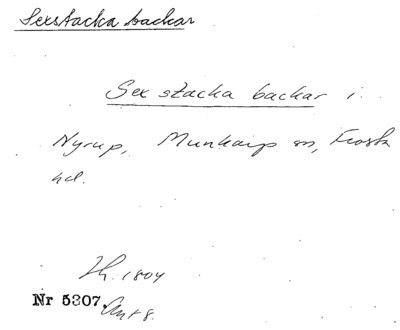 Sexstacka backar
Sex stacka backar i
Nyrup, Munkarp sn, Frosta
hd.
Lh. 1804
Nr 5307.
Akt 8.